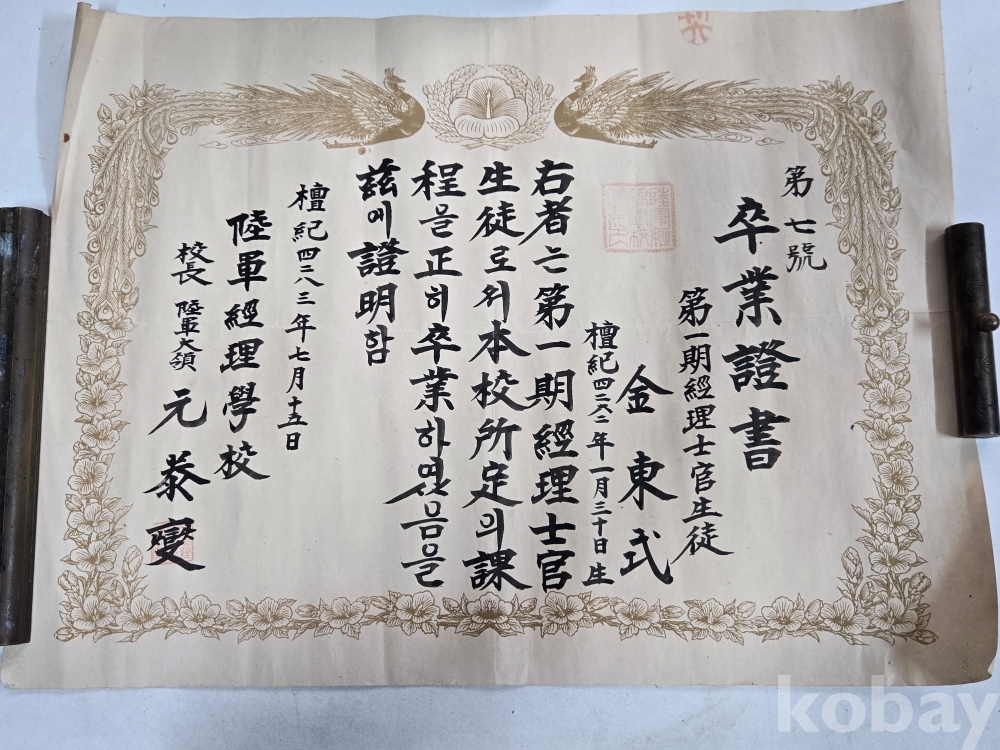 第七號
卒業證書
第一期經理士官生徒
金東式
檀紀四二六二年一月三十日生
右者는第一期經理士官
生徒로서本校所定의課
程을正히卒業하였음을
玆에證明함
檀紀四二八三年七月十五日
陸軍經理學校
校長 陸軍大領 元泰燮
kobay